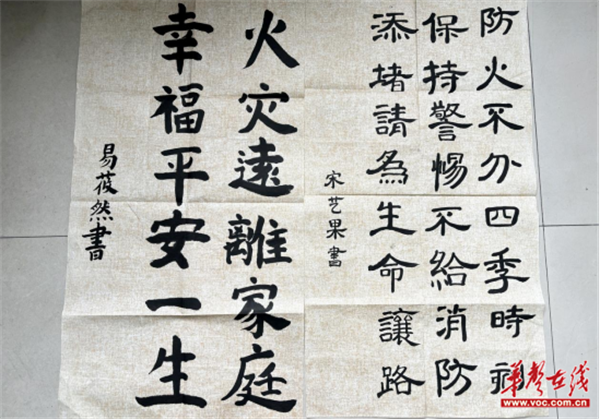 防火不分四季時刻
保持警惕不給消防
添堵請為生命讓路
宋艺果書
火灾遠離家庭
幸福平安一生
易莜然書
華聲在线
www.voc.com.cn